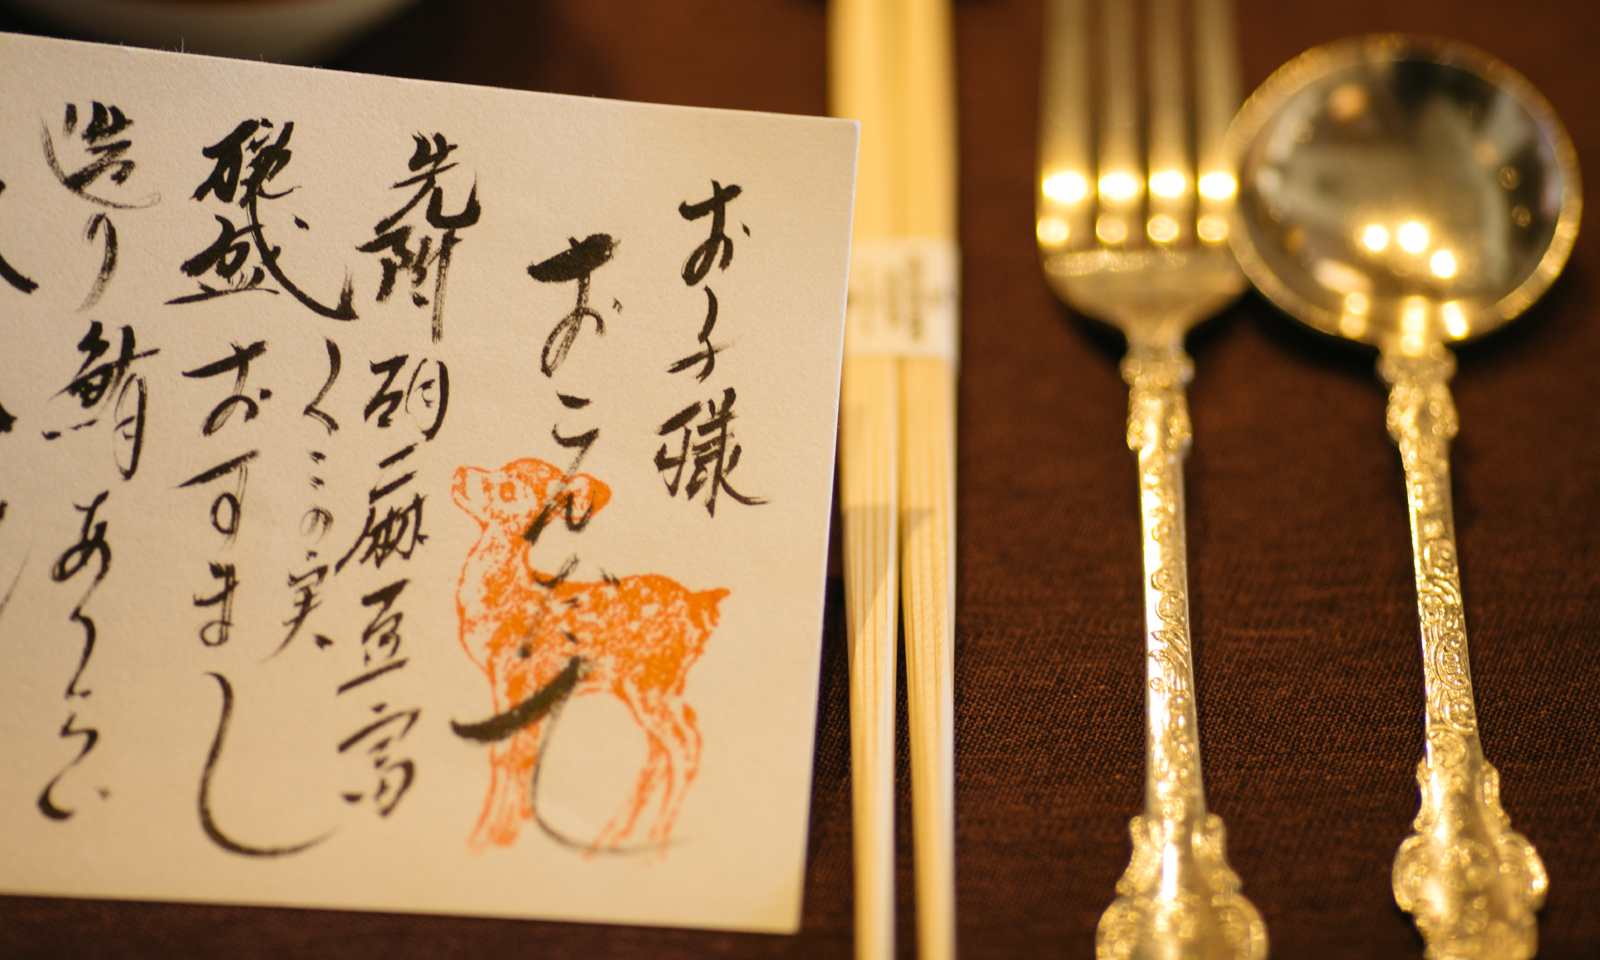 お子様
おこんだて
先附 胡麻豆富
くこの実
椀盛 おすまし
造り 鮪 あしらい